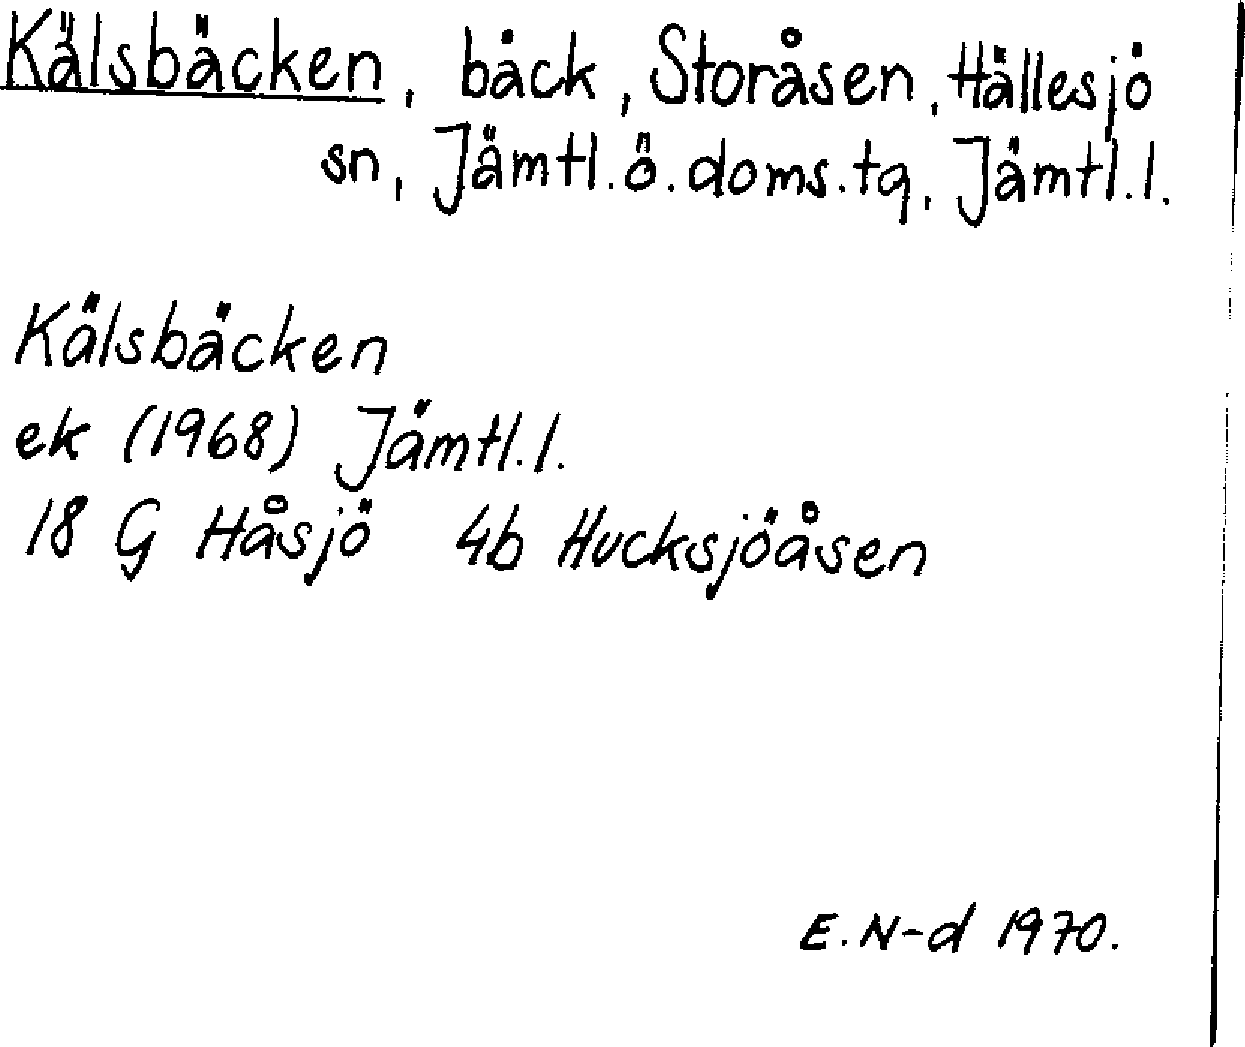 Kälsbäcken, bäck, Storåsen, Hällesjö
sn, Jämtl.ö.doms.tg, Jämtl.l.
Kälsbäcken
ek (1968) Jämtl.l.
18 G Håsjö 4b Hucksjöåsen
E.N-d 1970.